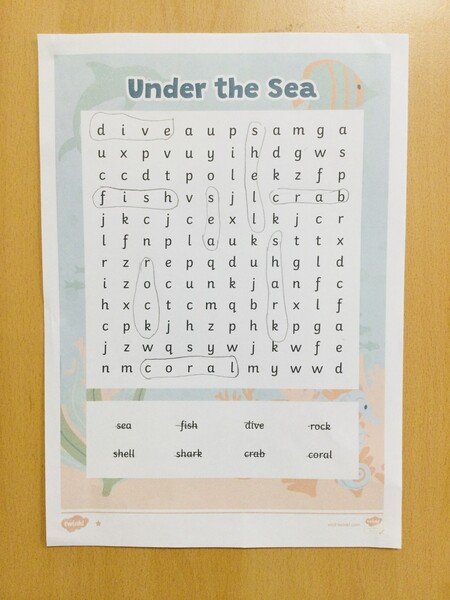 Under the Sea
d i v e a u p s a m g a
u x p v u y i h d g w s
c c d t p o l e k z f p
f i s h v s j l c r a b
j k c j c e x l k j c r
l f n p l a u k s t t x
r z r e p q d u h g l d
i z o c u n k j a n f c
h x c t c m q b r x l f
c p k j h z p h k p g a
j z w q s y w j k w f e
n m c o r a l m y w w d
sea fish dive rock
shell shark crab coral
twinkl